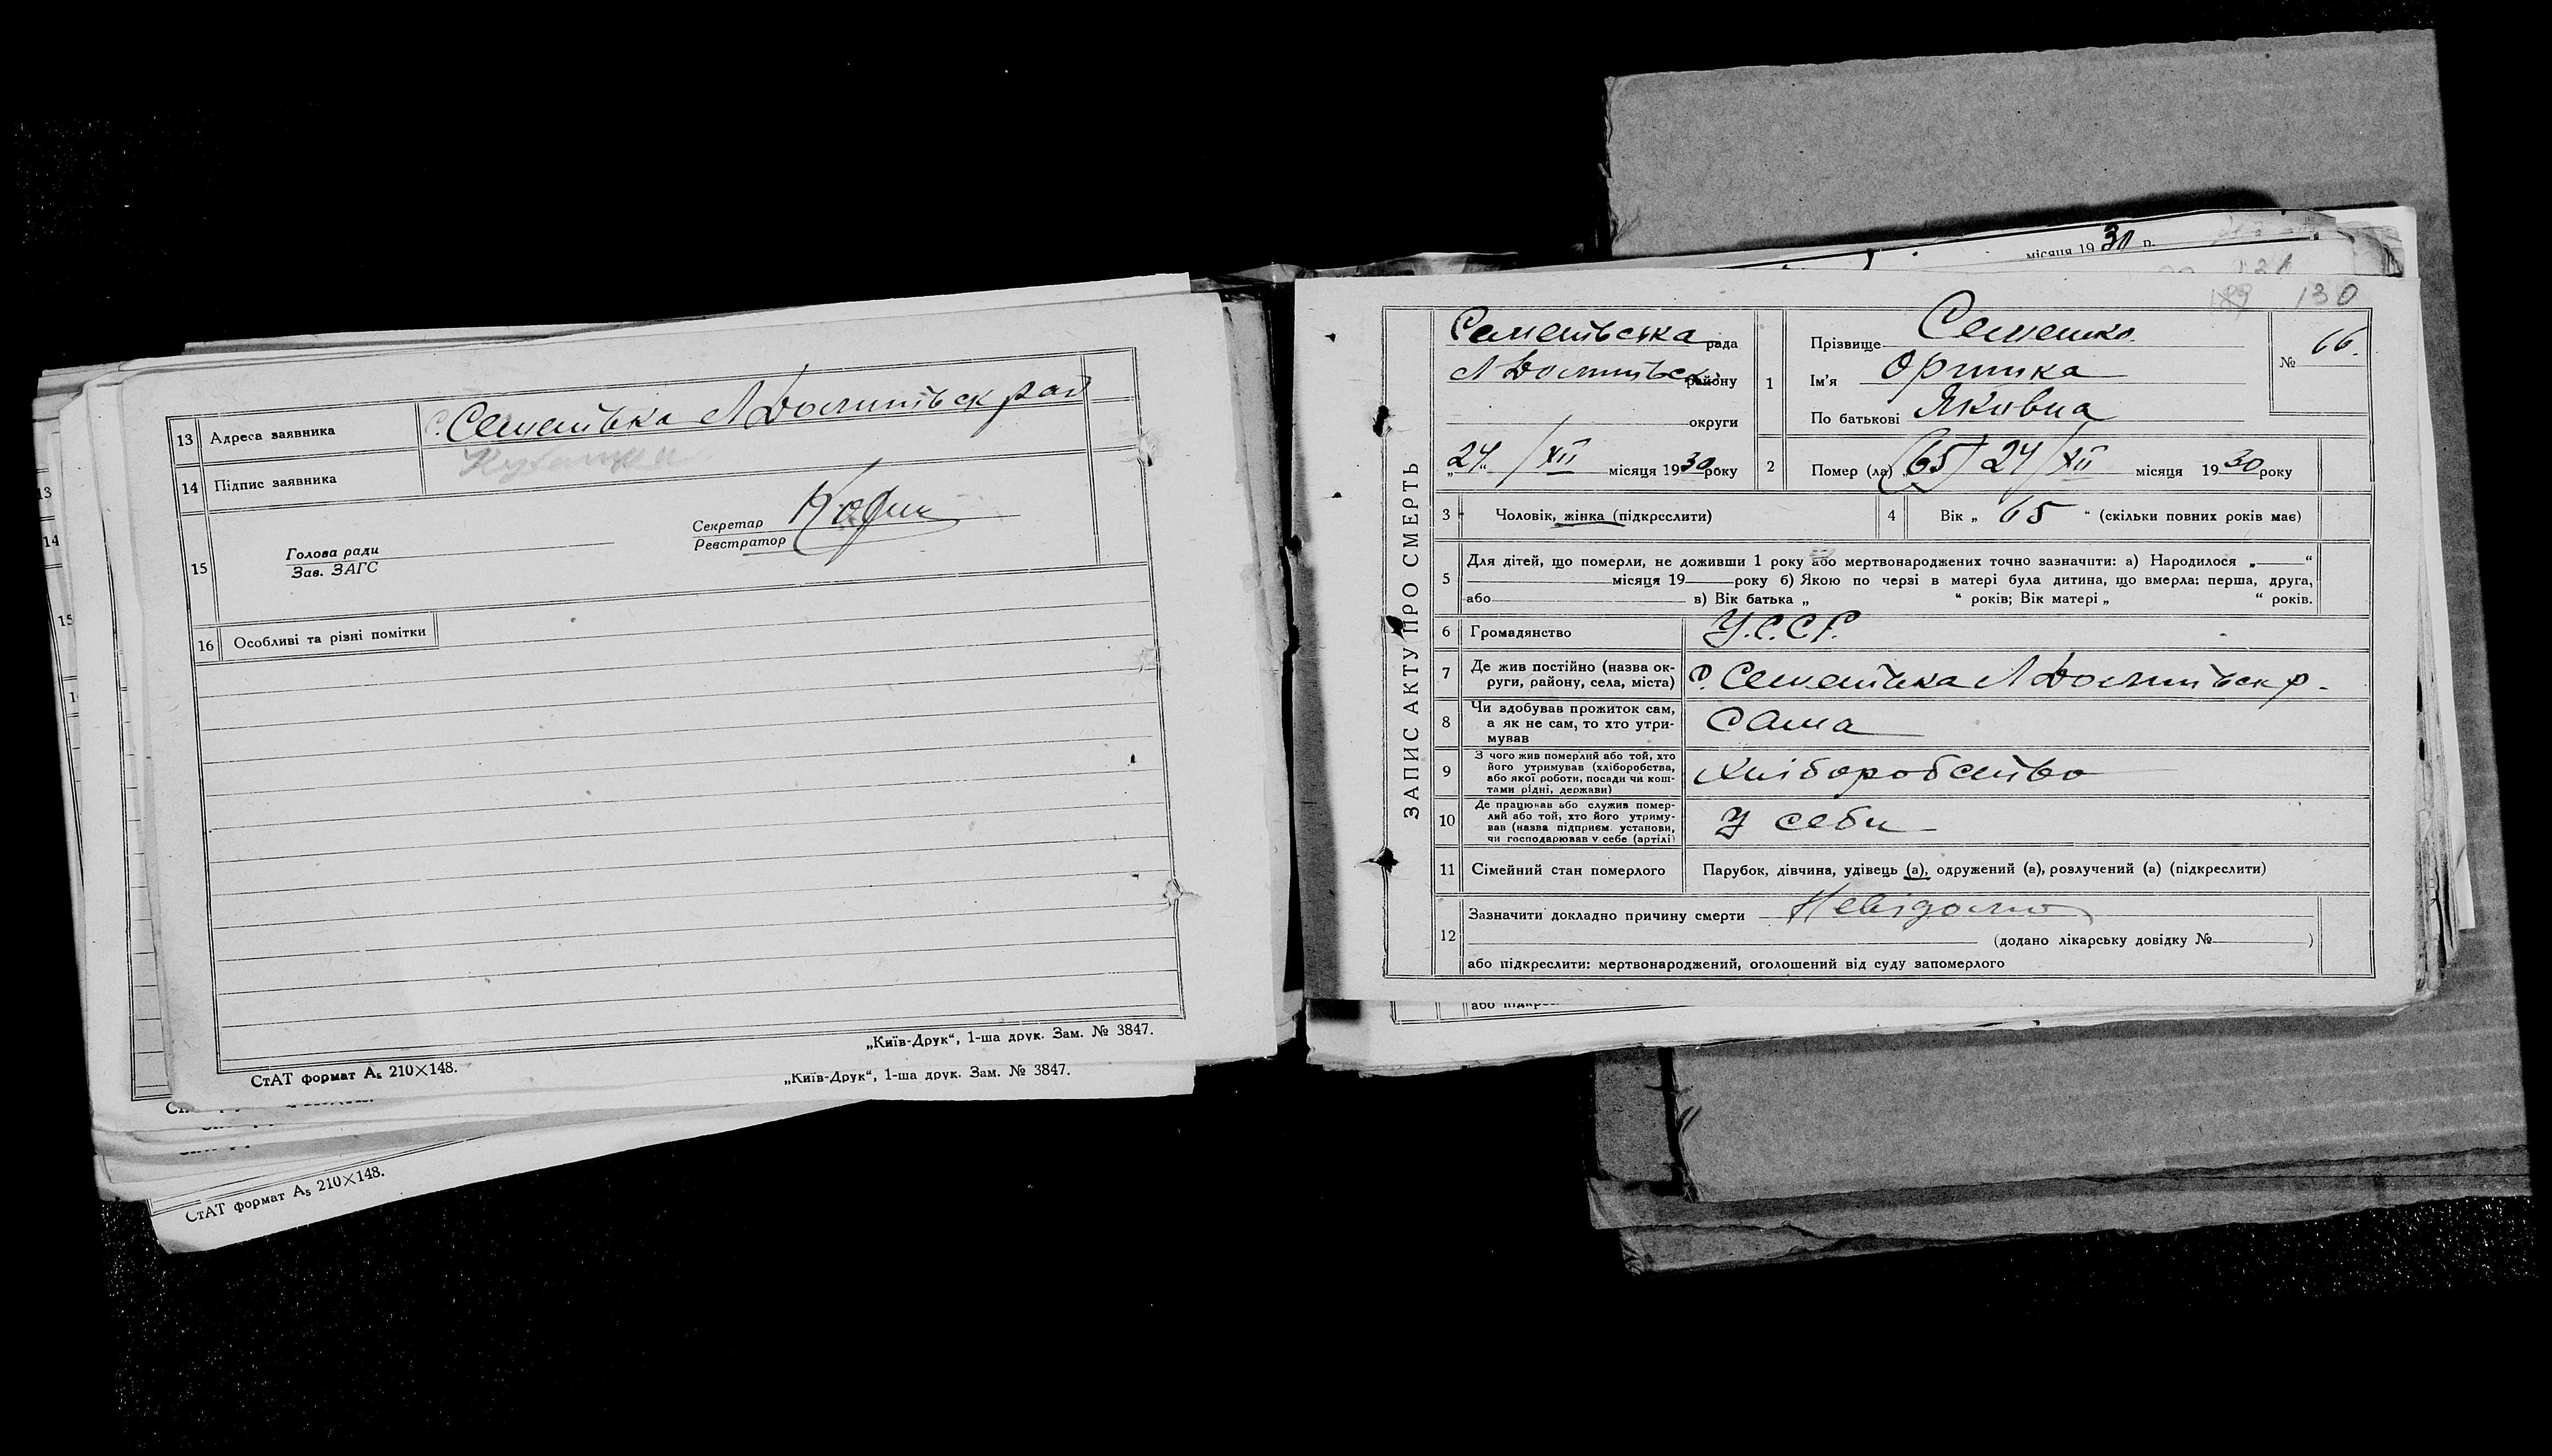 13 Адреса заявника с. Семенівка
14 Підпис заявника
15
Голова ради
Зав. ЗАГС
Секретар
Реєстратор
16 Особливі та різні помітки
„Київ-Друк“, 1-ша друк. Зам. № 3847.
СтАТ формат А₅ 210×148.
„Київ-Друк“, 1-ша друк. Зам. № 3847.
СтАТ формат А₅ 210×148.
місяця 1930 р.
189 130
ЗАПИС АКТУ ПРО СМЕРТЬ
рада
району
округи
„24“ /XII місяця 1930 року
1 Прізвище Семешко
Ім'я Оришка
По батькові Яковна
№ 66.
2 Помер (ла) (65) 24/XII місяця 1930 року
3 Чоловік, жінка (підкреслити)
4 Вік „ 65 “ (скільки повних років має)
5 Для дітей, що померли, не доживши 1 року або мертвонароджених точно зазначити: а) Народилося „ “
місяця 19 року б) Якою по черзі в матері була дитина, що вмерла: перша, друга,
або в) Вік батька „ “ років; Вік матері „ “ років.
6 Громадянство У.С.С.Р.
7 Де жив постійно (назва ок-
руги, району, села, міста) с. Семенівка
8 Чи здобував прожиток сам,
а як не сам, то хто утри-
мував сама
9 З чого жив померлий або той, хто
його утримував (хліборобства,
або якої роботи, посади чи кош-
тами рідні, держави) Хліборобство
10 Де працював або служив помер-
лий або той, хто його утриму-
вав (назва підприєм. установи,
чи господарював у себе (артілі) У себи
11 Сімейний стан померлого Парубок, дівчина, удівець (а), одружений (а), розлучений (а) (підкреслити)
12 Зазначити докладно причину смерти Невідомо
(додано лікарську довідку № )
або підкреслити: мертвонароджений, оголошений від суду запомерлого